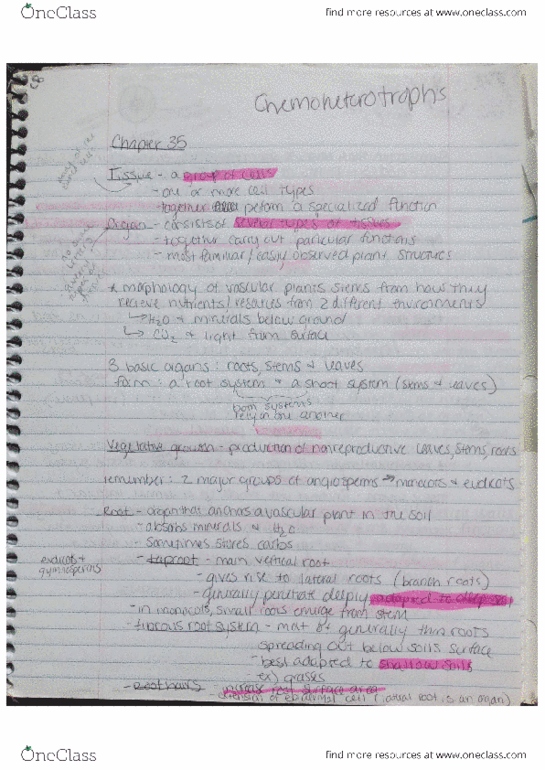 OneClass
find more resources at www.oneclass.com
Chemoheterotrophs
Chapter 35
Tissue - a group of cells
- one or more cell types
- together perform a specialized function
Organ - consists of several types of tissues
- together carry out particular functions
- most familiar/easily observed plant structures
* morphology of vascular plants stems from how they
recieve nutrients/resources from 2 different environments
↳ H2O + minerals below ground
↳ CO2 + light from surface
3 basic organs: roots, stems + leaves
form: a root system + a shoot system (stems + leaves)
both systems
rely on one another
Vegetative growth - production of nonreproductive leaves, stems, roots
remember: 2 major groups of angiosperms → monocots + eudicots
Root - organ that anchors a vascular plant in the soil
- absorbs minerals + H2O
- sometimes stores carbs
eudicots +
gymnosperms
- taproot - main vertical root
- gives rise to lateral roots (branch roots)
- generally penetrate deeply adapted to deep soil
- in monocots, small roots emerge from stem
- fibrous root system - mat of generally thin roots
spreading out below soil's surface
- best adapted to shallow soils
ex) grasses
- root hairs increase root surface area
extension of epidermal cell (lateral root is an organ)
OneClass
find more resources at www.oneclass.com